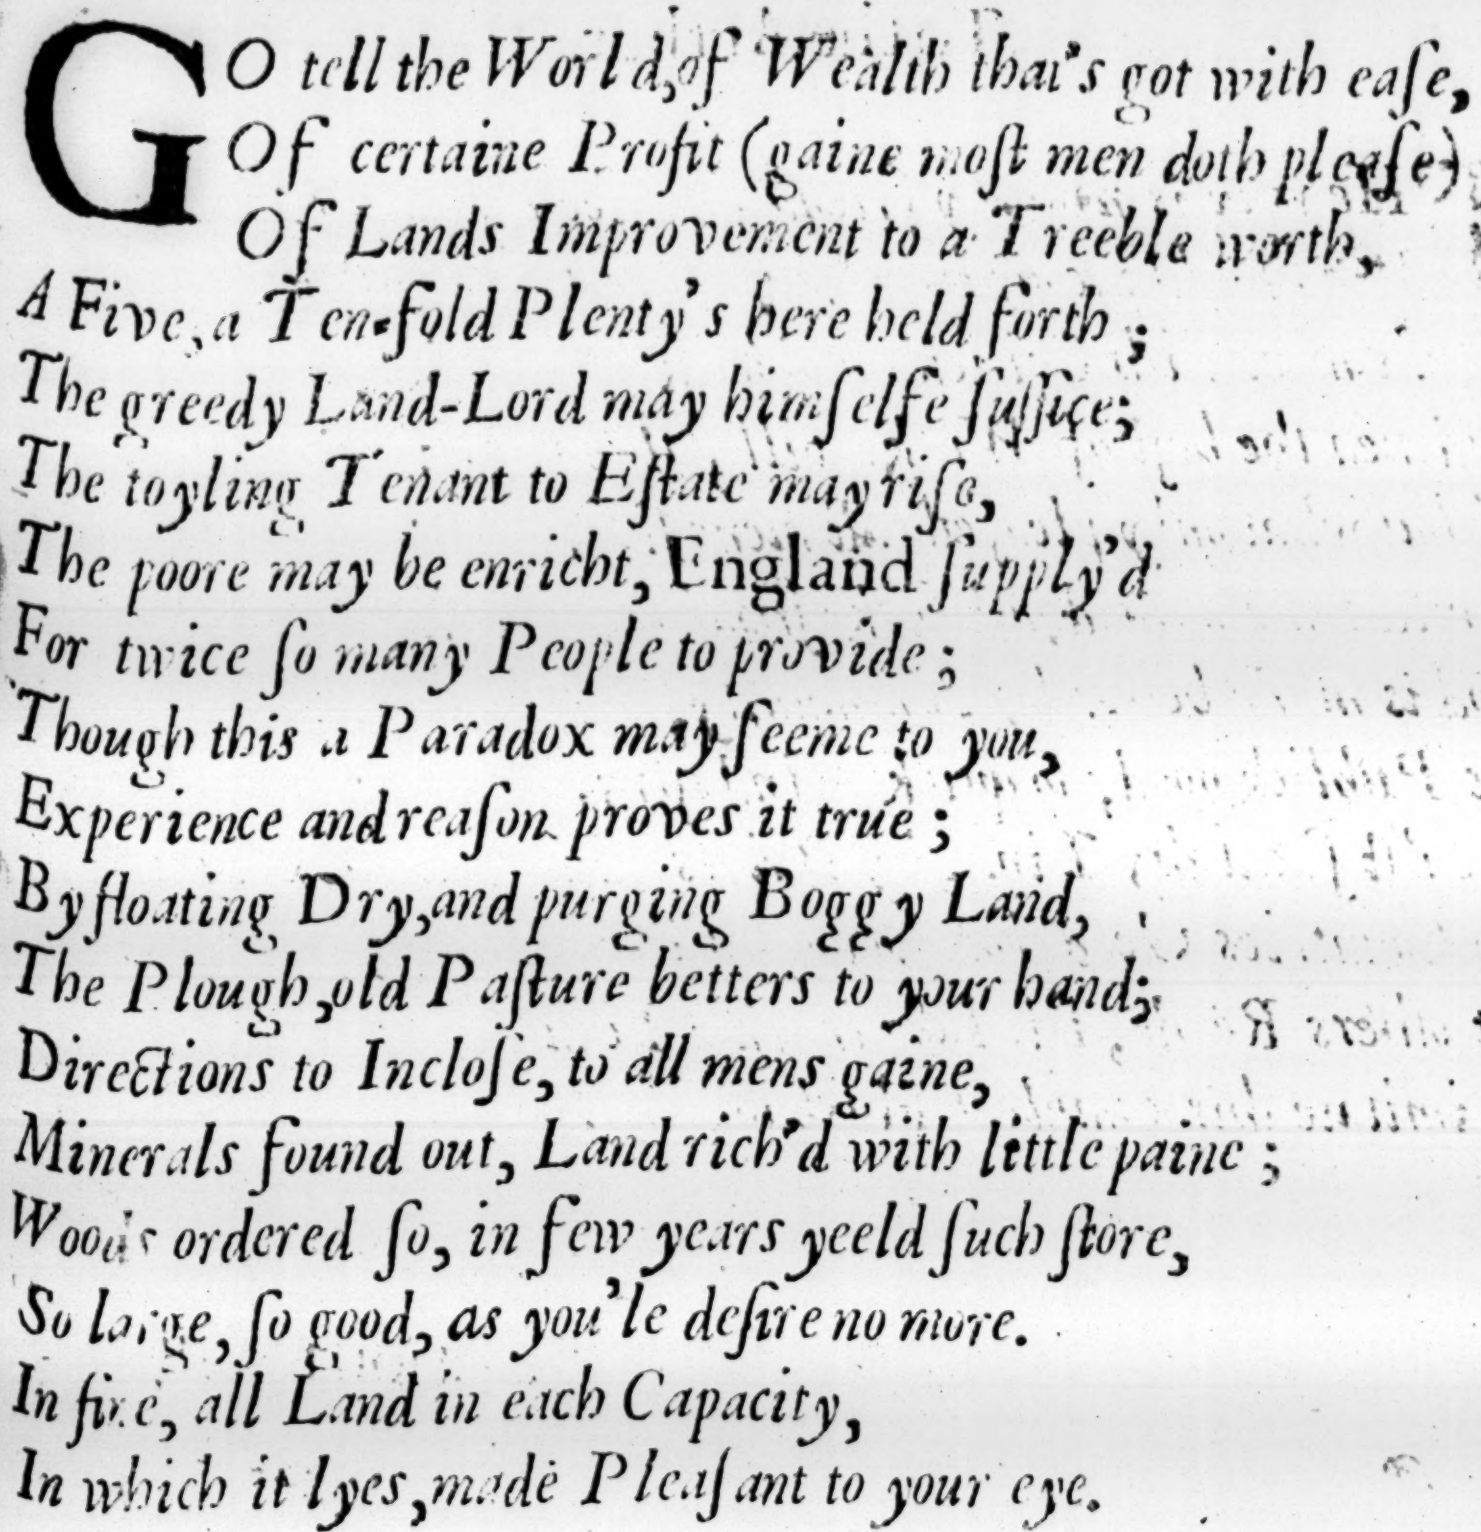 GO tell the World, of Wealth that's got with eaſe,
Of certaine Profit (gaine moſt men doth pleaſe)
Of Lands Improvement to a Treeble worth,
A Five, a Ten-fold Plenty's here held forth;
The greedy Land-Lord may himſelfe ſuffice;
The toyling Tenant to Eſtate may riſe,
The poore may be enricht, England ſupply'd
For twice ſo many People to provide;
Though this a Paradox may ſeeme to you,
Experience and reaſon proves it true;
By floating Dry, and purging Boggy Land,
The Plough, old Paſture betters to your hand;
Directions to Incloſe, to all mens gaine,
Minerals found out, Land rich'd with little paine;
Woods ordered ſo, in few years yeeld ſuch ſtore,
So large, ſo good, as you'le deſire no more.
In fine, all Land in each Capacity,
In which it lyes, made Pleaſant to your eye.